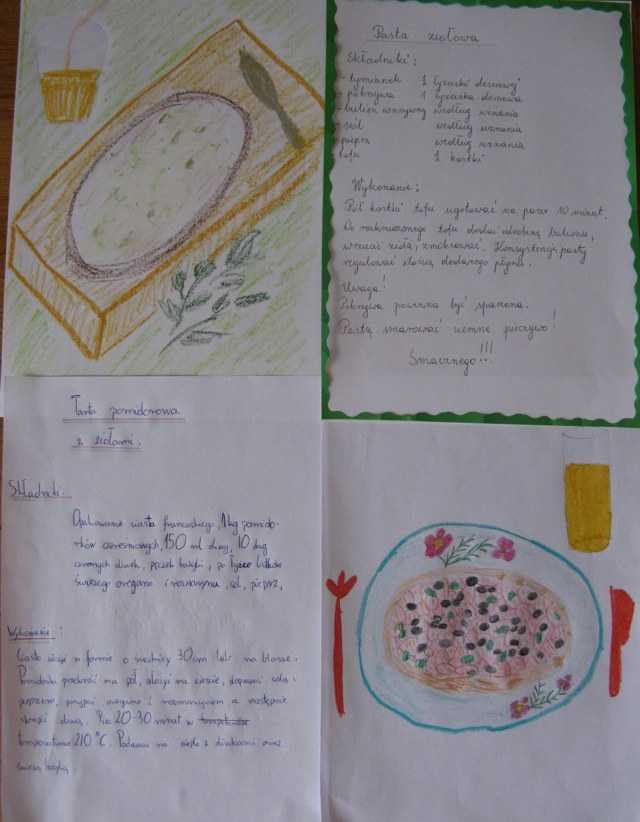 Pasta ziołowa
Składniki:
- tymianek 1 łyżeczka deserowej
- pokrzywa 1 łyżeczka deserowa
- bulion warzywny według uznania
- sól według uznania
- pieprz według uznania
- tofu 1 kostki
Wykonanie:
Pół kostki tofu ugotować na parze 10 minut.
Do rozdrobnionego tofu dodać odrobinę bulionu,
wrzucić zioła, zmiksować. Konsystencję pasty
regulować ilością dodanego płynu.
Uwaga!
Pokrzywa powinna być sparzona.
Pastą smarować ciemne pieczywo!
Smacznego!!!
Tarta pomidorowa
z ziołami.
Składniki:
Opakowanie ciasta francuskiego, 1kg pomido-
rków czereśniowych, 150 ml oliwy, 10 dag
czarnych oliwek, pęczek bazylii, po łyżce listków
świeżego oregano i rozmarynu, sól, pieprz,
Wykonanie:
Ciasto ułożyć w formie o średnicy 30cm lub na blasze.
Pomidorki przekroić na pół, ułożyć na cieście, doprawić solą i
pieprzem, posypać oregano i rozmarynem a następnie
skropić oliwą. Piec 20-30 minut w
temperaturze 210 °C. Podawać na ciepło z oliwkami oraz
świeżą bazylią.